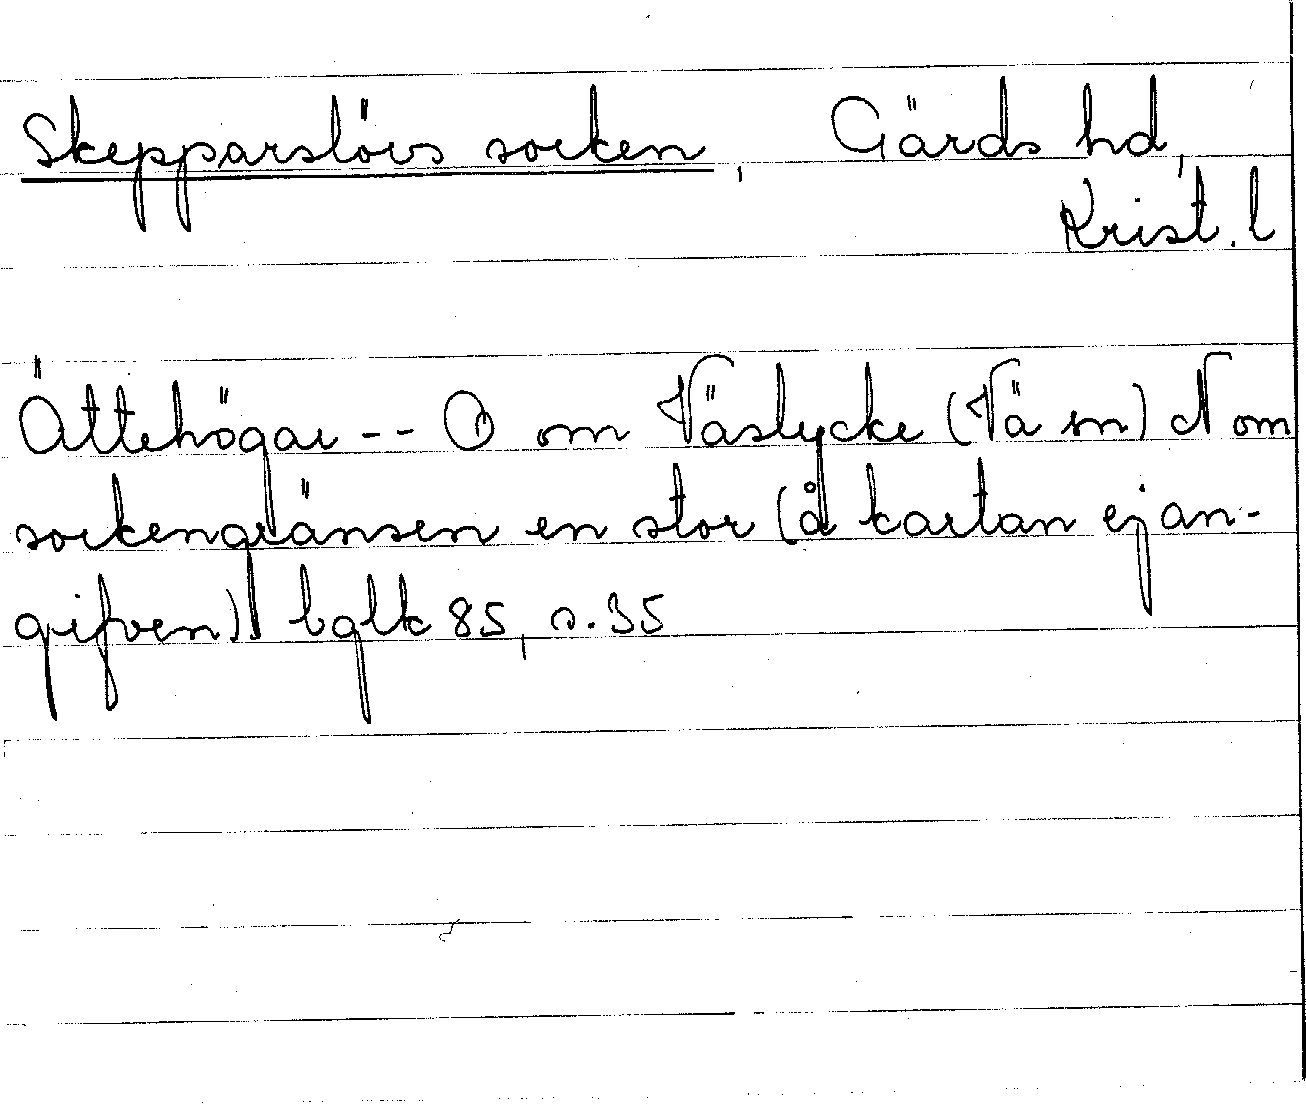 Skepparslövs socken, Gärds hd,
Krist. l
Ättehögar -- O om Väslycke (Vä sn) N om
sockengränsen en stor (å kartan ej an-
gifven) bglk 85, s. 35